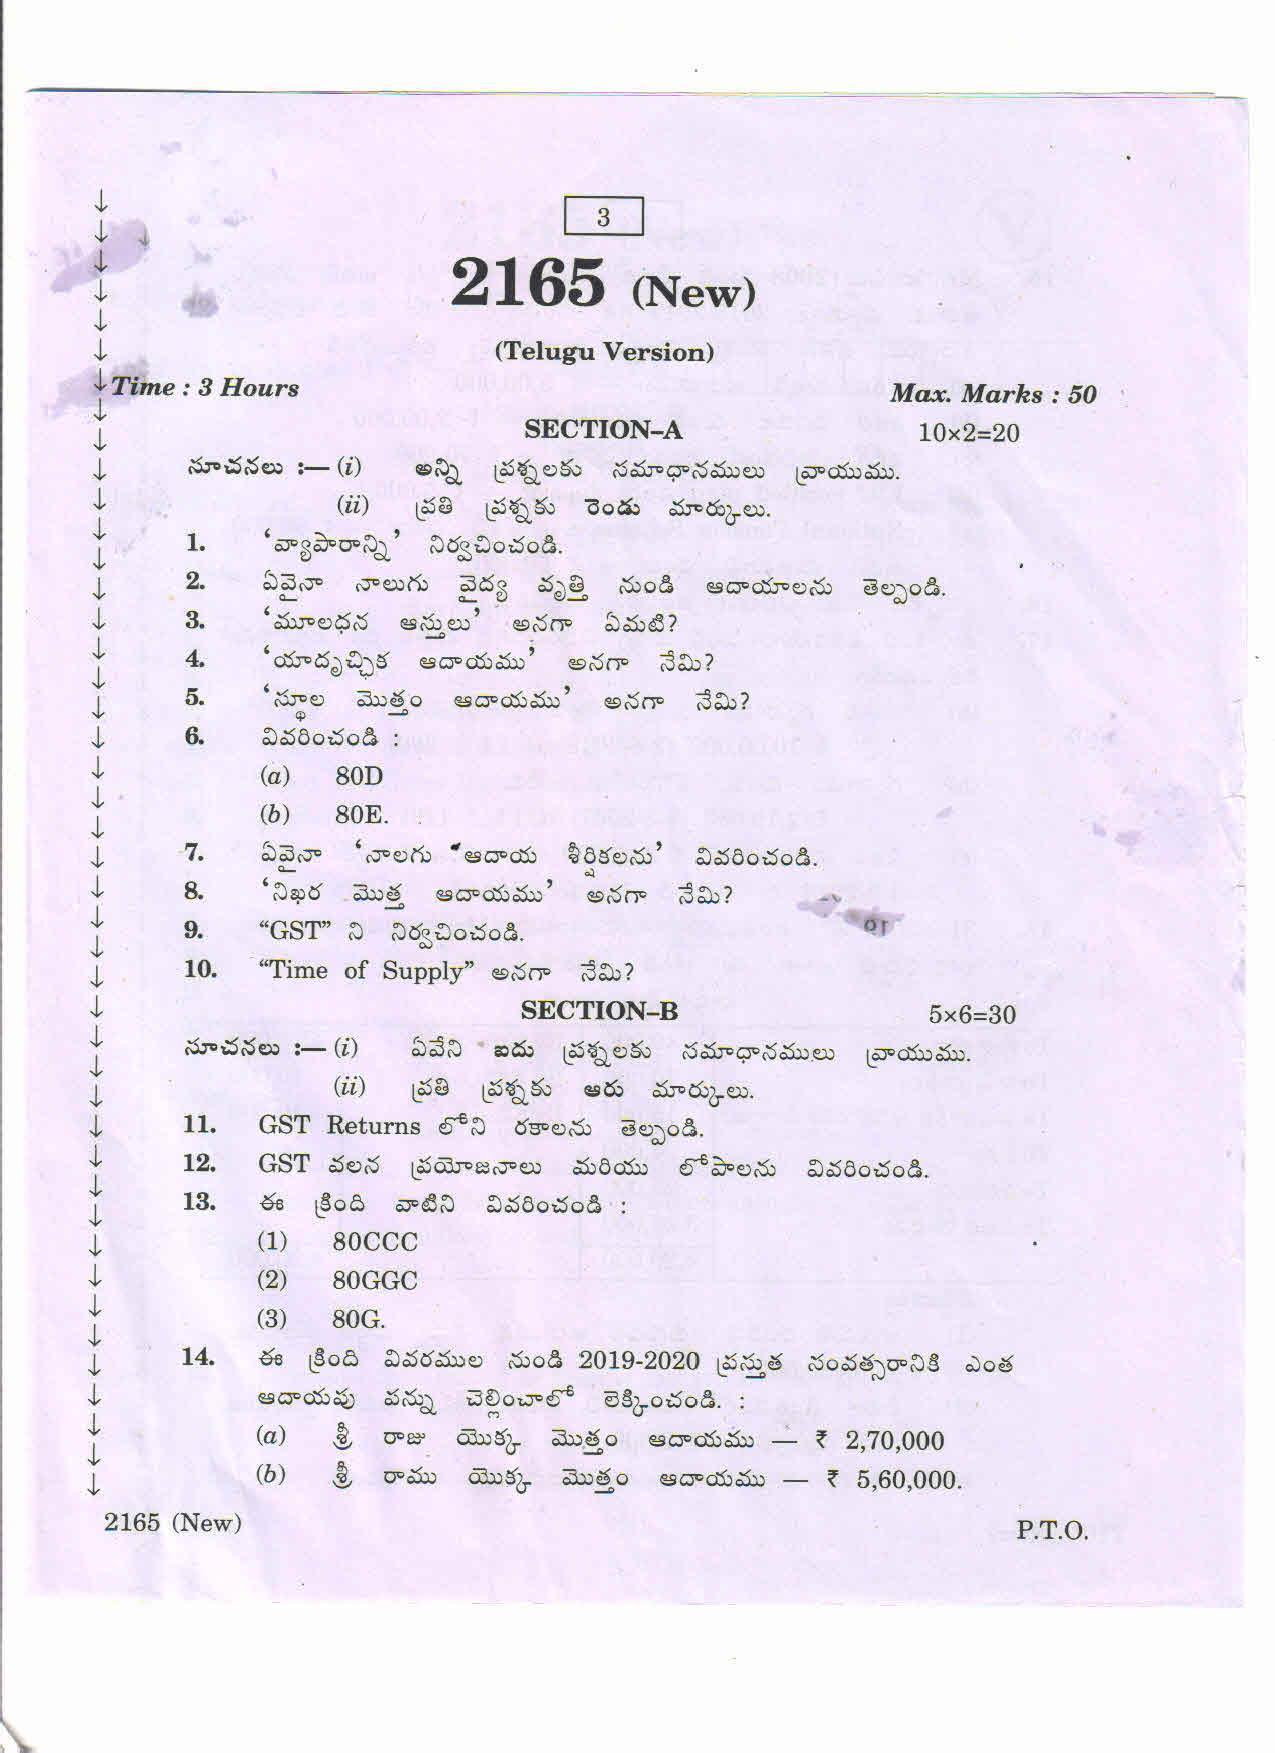 3
2165 (New)
(Telugu Version)
Time : 3 Hours
Max. Marks : 50
SECTION–A 10×2=20
సూచనలు :— (i) అన్ని ప్రశ్నలకు సమాధానములు వ్రాయుము.
(ii) ప్రతి ప్రశ్నకు రెండు మార్కులు.
1. ‘వ్యాపారాన్ని’ నిర్వచించండి.
2. ఏవైనా నాలుగు వైద్య వృత్తి నుండి ఆదాయాలను తెల్పండి.
3. ‘మూలధన ఆస్తులు’ అనగా ఏమటి?
4. ‘యాదృచ్ఛిక ఆదాయము’ అనగా నేమి?
5. ‘స్థూల మొత్తం ఆదాయము’ అనగా నేమి?
6. వివరించండి :
(a) 80D
(b) 80E.
7. ఏవైనా ‘నాలగు ఆదాయ శీర్షికలను’ వివరించండి.
8. ‘నిఖర మొత్త ఆదాయము’ అనగా నేమి?
9. “GST” ని నిర్వచించండి.
10. “Time of Supply” అనగా నేమి?
SECTION–B 5×6=30
సూచనలు :— (i) ఏవేని ఐదు ప్రశ్నలకు సమాధానములు వ్రాయుము.
(ii) ప్రతి ప్రశ్నకు ఆరు మార్కులు.
11. GST Returns లోని రకాలను తెల్పండి.
12. GST వలన ప్రయోజనాలు మరియు లోపాలను వివరించండి.
13. ఈ క్రింది వాటిని వివరించండి :
(1) 80CCC
(2) 80GGC
(3) 80G.
14. ఈ క్రింది వివరముల నుండి 2019-2020 ప్రస్తుత సంవత్సరానికి ఎంత
ఆదాయపు పన్ను చెల్లించాలో లెక్కించండి. :
(a) శ్రీ రాజు యొక్క మొత్తం ఆదాయము — ₹ 2,70,000
(b) శ్రీ రాము యొక్క మొత్తం ఆదాయము — ₹ 5,60,000.
2165 (New)
P.T.O.